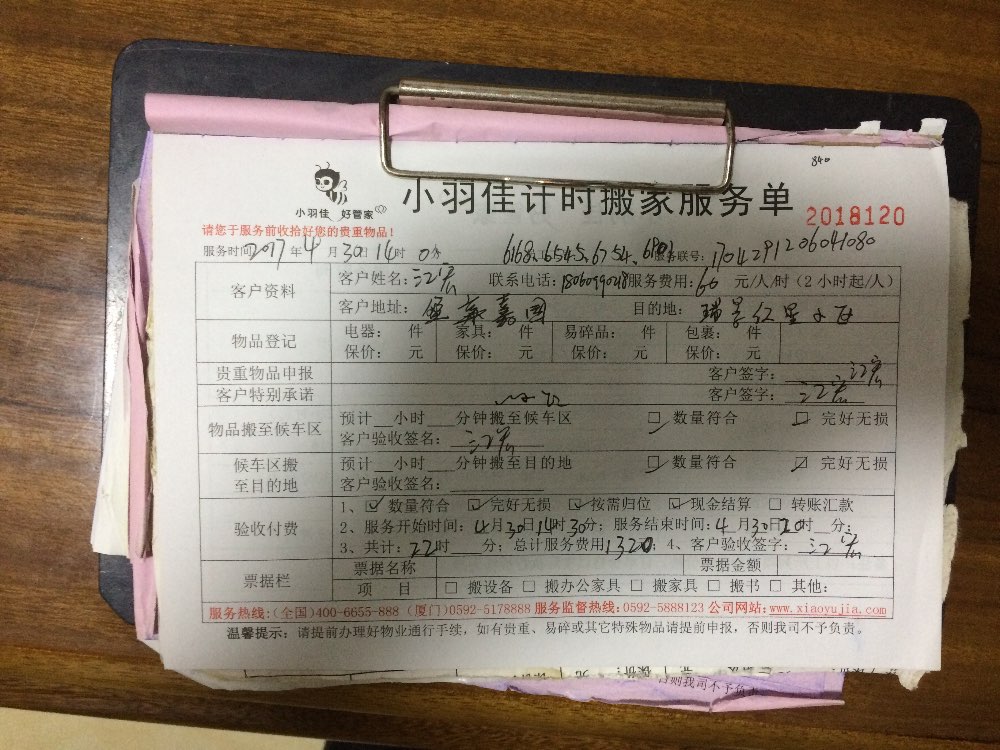 840
小羽佳 好管家
小羽佳计时搬家服务单
2018120
请您于服务前收拾好您的贵重物品!
服务时间 2017年4月30日14时0分 6168、6545、6754、6801 服务联号: 170429120604 1080
客户资料 客户姓名: 江宏 联系电话: 服务费用: 60 元/人/时(2小时起/人)
客户地址: 嘉园 目的地: 瑞景红星小区
物品登记 电器: 件 家具: 件 易碎品: 件 包裹: 件
保价: 元 保价: 元 保价: 元 保价: 元
贵重物品申报 客户签字: 江宏
客户特别承诺 客户签字: 江宏
物品搬至候车区 预计__小时___分钟搬至候车区 ☑ 数量符合 ☑ 完好无损
客户验收签名: 江宏
候车区搬至目的地 预计__小时___分钟搬至目的地 ☑ 数量符合 ☑ 完好无损
客户验收签名:
验收付费 1、☑ 数量符合 ☑ 完好无损 ☑ 按需归位 ☑ 现金结算 □ 转账汇款
2、服务开始时间: 4月30日14时30分; 服务结束时间: 4月30日20时__分;
3、共计: 22时___分; 总计服务费用1320; 4、客户验收签字: 江宏
票据栏 票据名称 票据金额
项 目 □ 搬设备 □ 搬办公家具 □ 搬家具 □ 搬书 □ 其他:
服务热线:(全国)400-6655-888 (厦门)0592-5178888 服务监督热线:0592-5888123 公司网站:www.xiaoyujia.com
温馨提示: 请提前办理好物业通行手续, 如有贵重、易碎或其它特殊物品请提前申报, 否则我司不予负责。
否则我司不予负